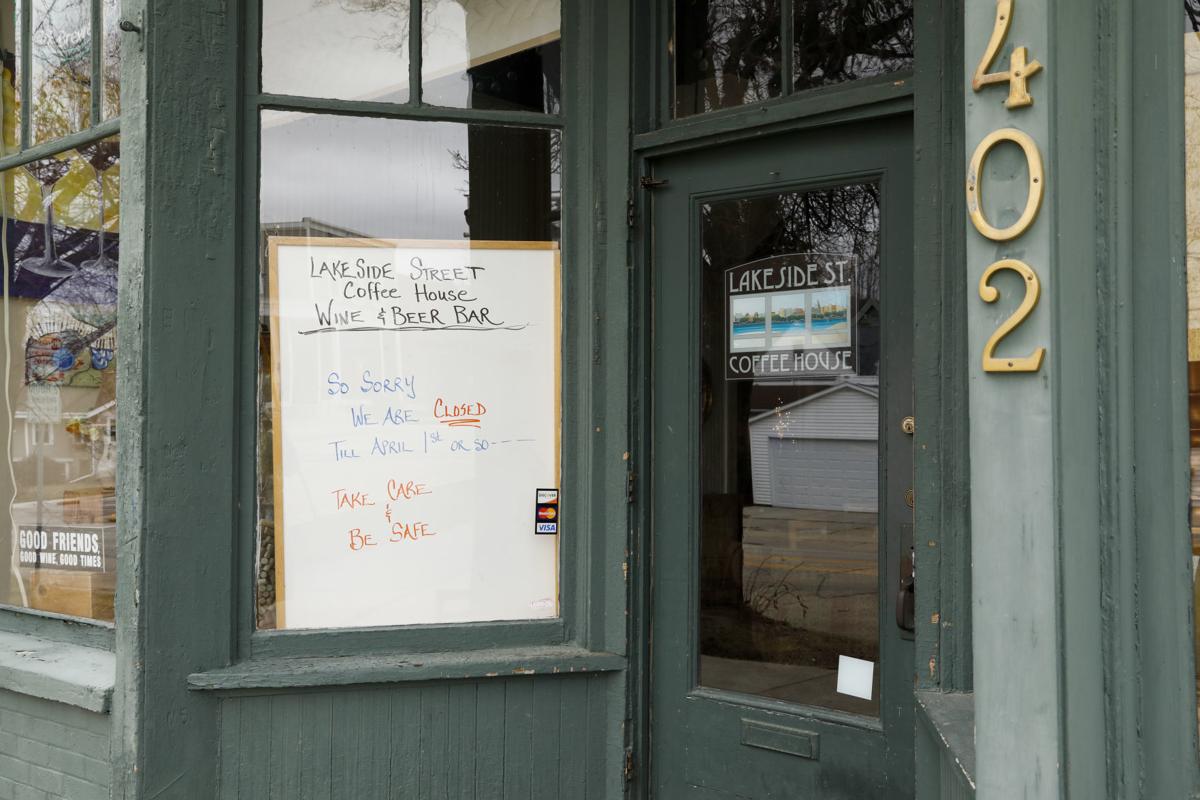 LAKESIDE STREET
Coffee House
WINE & BEER BAR
SO SORRY
WE ARE CLOSED
TILL APRIL 1st OR SO----
TAKE CARE
&
BE SAFE
DISCOVER
MasterCard
VISA
GOOD FRIENDS,
GOOD WINE, GOOD TIMES
LAKESIDE ST
COFFEE HOUSE
402